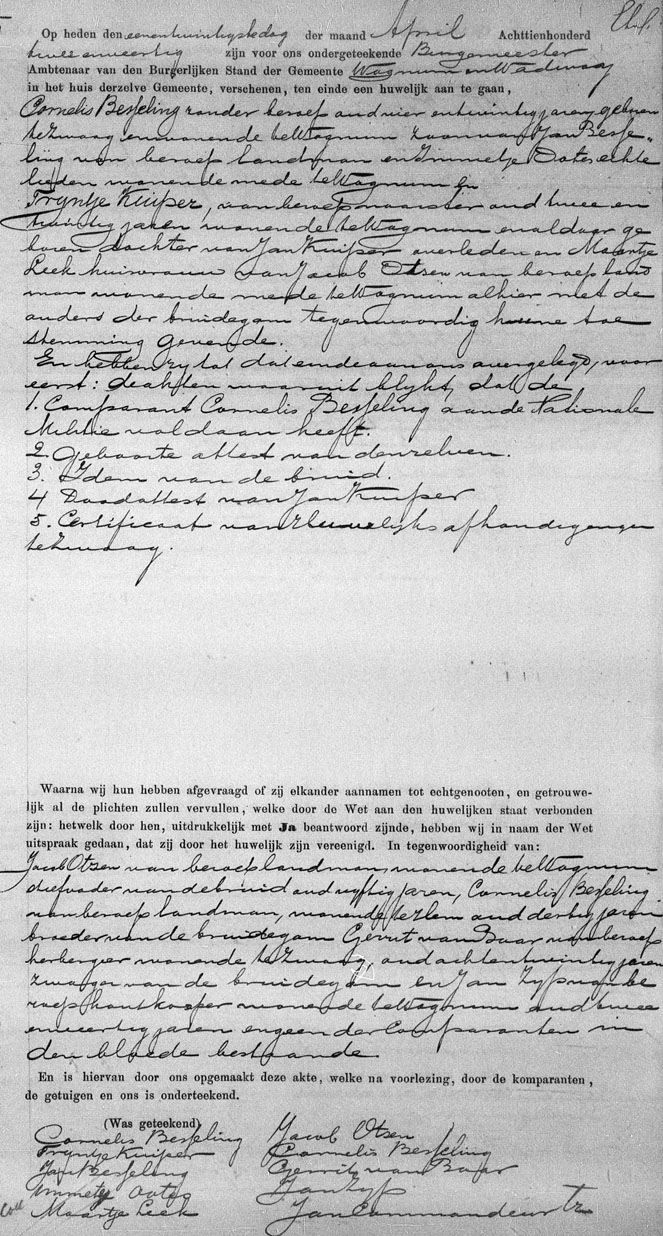 Op heden den eenentwintigste dag der maand April Achttienhonderd
twee en veertig zijn voor ons ondergeteekende Burgemeester
Ambtenaar van den Burgerlijken Stand der Gemeente Wognum en Wadway
in het huis derzelve Gemeente, verschenen, ten einde een huwelijk aan te gaan,
Cornelis Besseling zonder beroep oud vier en twintig jaren geboren
te Zwaag en wonende te Wognum zoon van Jan Besse-
ling van beroep landman en Immetje Ootes echte
lieden wonende mede te Wognum En
Tryntje Kuiper, van beroep naaister oud twee en
twintig jaren wonende te Wognum en aldaar ge
boren dochter van Jan Kuiper overleden en Maartje
Leek huisvrouw van Jacob Otsen van beroep land
man wonende mede te Wognum alhier met de
ouders der bruidegom tegenwoordig hunne toe
stemming gevende.
En hebben zy tot dat einde aan ons overgelegd, voor
eerst: de akten waaruit blykt, dat de
1. Comparant Cornelis Besseling aan de Nationale
Militie voldaan heeft.
2. Geboorte attest van denzelven.
3. Idem van de bruid.
4 Doodattest van Jan Kuiper
5. Certificaat van Huwelijks afkondigingen
te Zwaag.
Waarna wij hun hebben afgevraagd of zij elkander aannamen tot echtgenooten, en getrouwe-
lijk al de plichten zullen vervullen, welke door de Wet aan den huwelijken staat verbonden
zijn: hetwelk door hen, uitdrukkelijk met Ja beantwoord zijnde, hebben wij in naam der Wet
uitspraak gedaan, dat zij door het huwelijk zijn vereenigd. In tegenwoordigheid van:
Jacob Otsen van beroep landman, wonende te Wognum
stiefvader van de bruid oud vyftig jaren, Cornelis Besseling
van beroep landman, wonende te oud dertig jaren
broeder van de bruidegom Gerrit van Baar van beroep
herberger wonende te Zwaag oud achtentwintig jaren
zwager van de bruidegom en Jan Zyp van be
roep houtkooper wonende te Wognum oud twee
en veertig jaren en geen der Comparanten in
den bloede bestaande.
En is hiervan door ons opgemaakt deze akte, welke na voorlezing, door de komparanten,
de getuigen en ons is onderteekend.
(Was geteekend)
Cornelis Besseling Jacob Otsen
Tryntje Kuiper Cornelis Besseling
Jan Besseling Gerrit van Baar
Immetje Ootes Jan Zyp
Maartje Leek Jan Commandeur